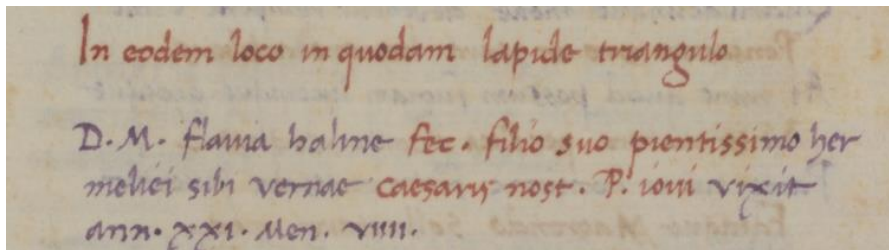 In eodem loco in quodam lapide triangulo
D. M. flavia haline fec. filio suo pientissimo her
meliei sibi vernae caesaris nost. P. iovi vixit
ann. xxi. Men. viiii.